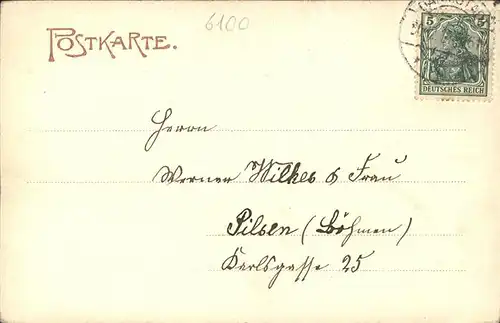 6100
POSTKARTE.
5 5
DEUTSCHES REICH
Herrn
Werner Wilkes & Frau
Pilsen (Böhmen)
Karlsgasse 25